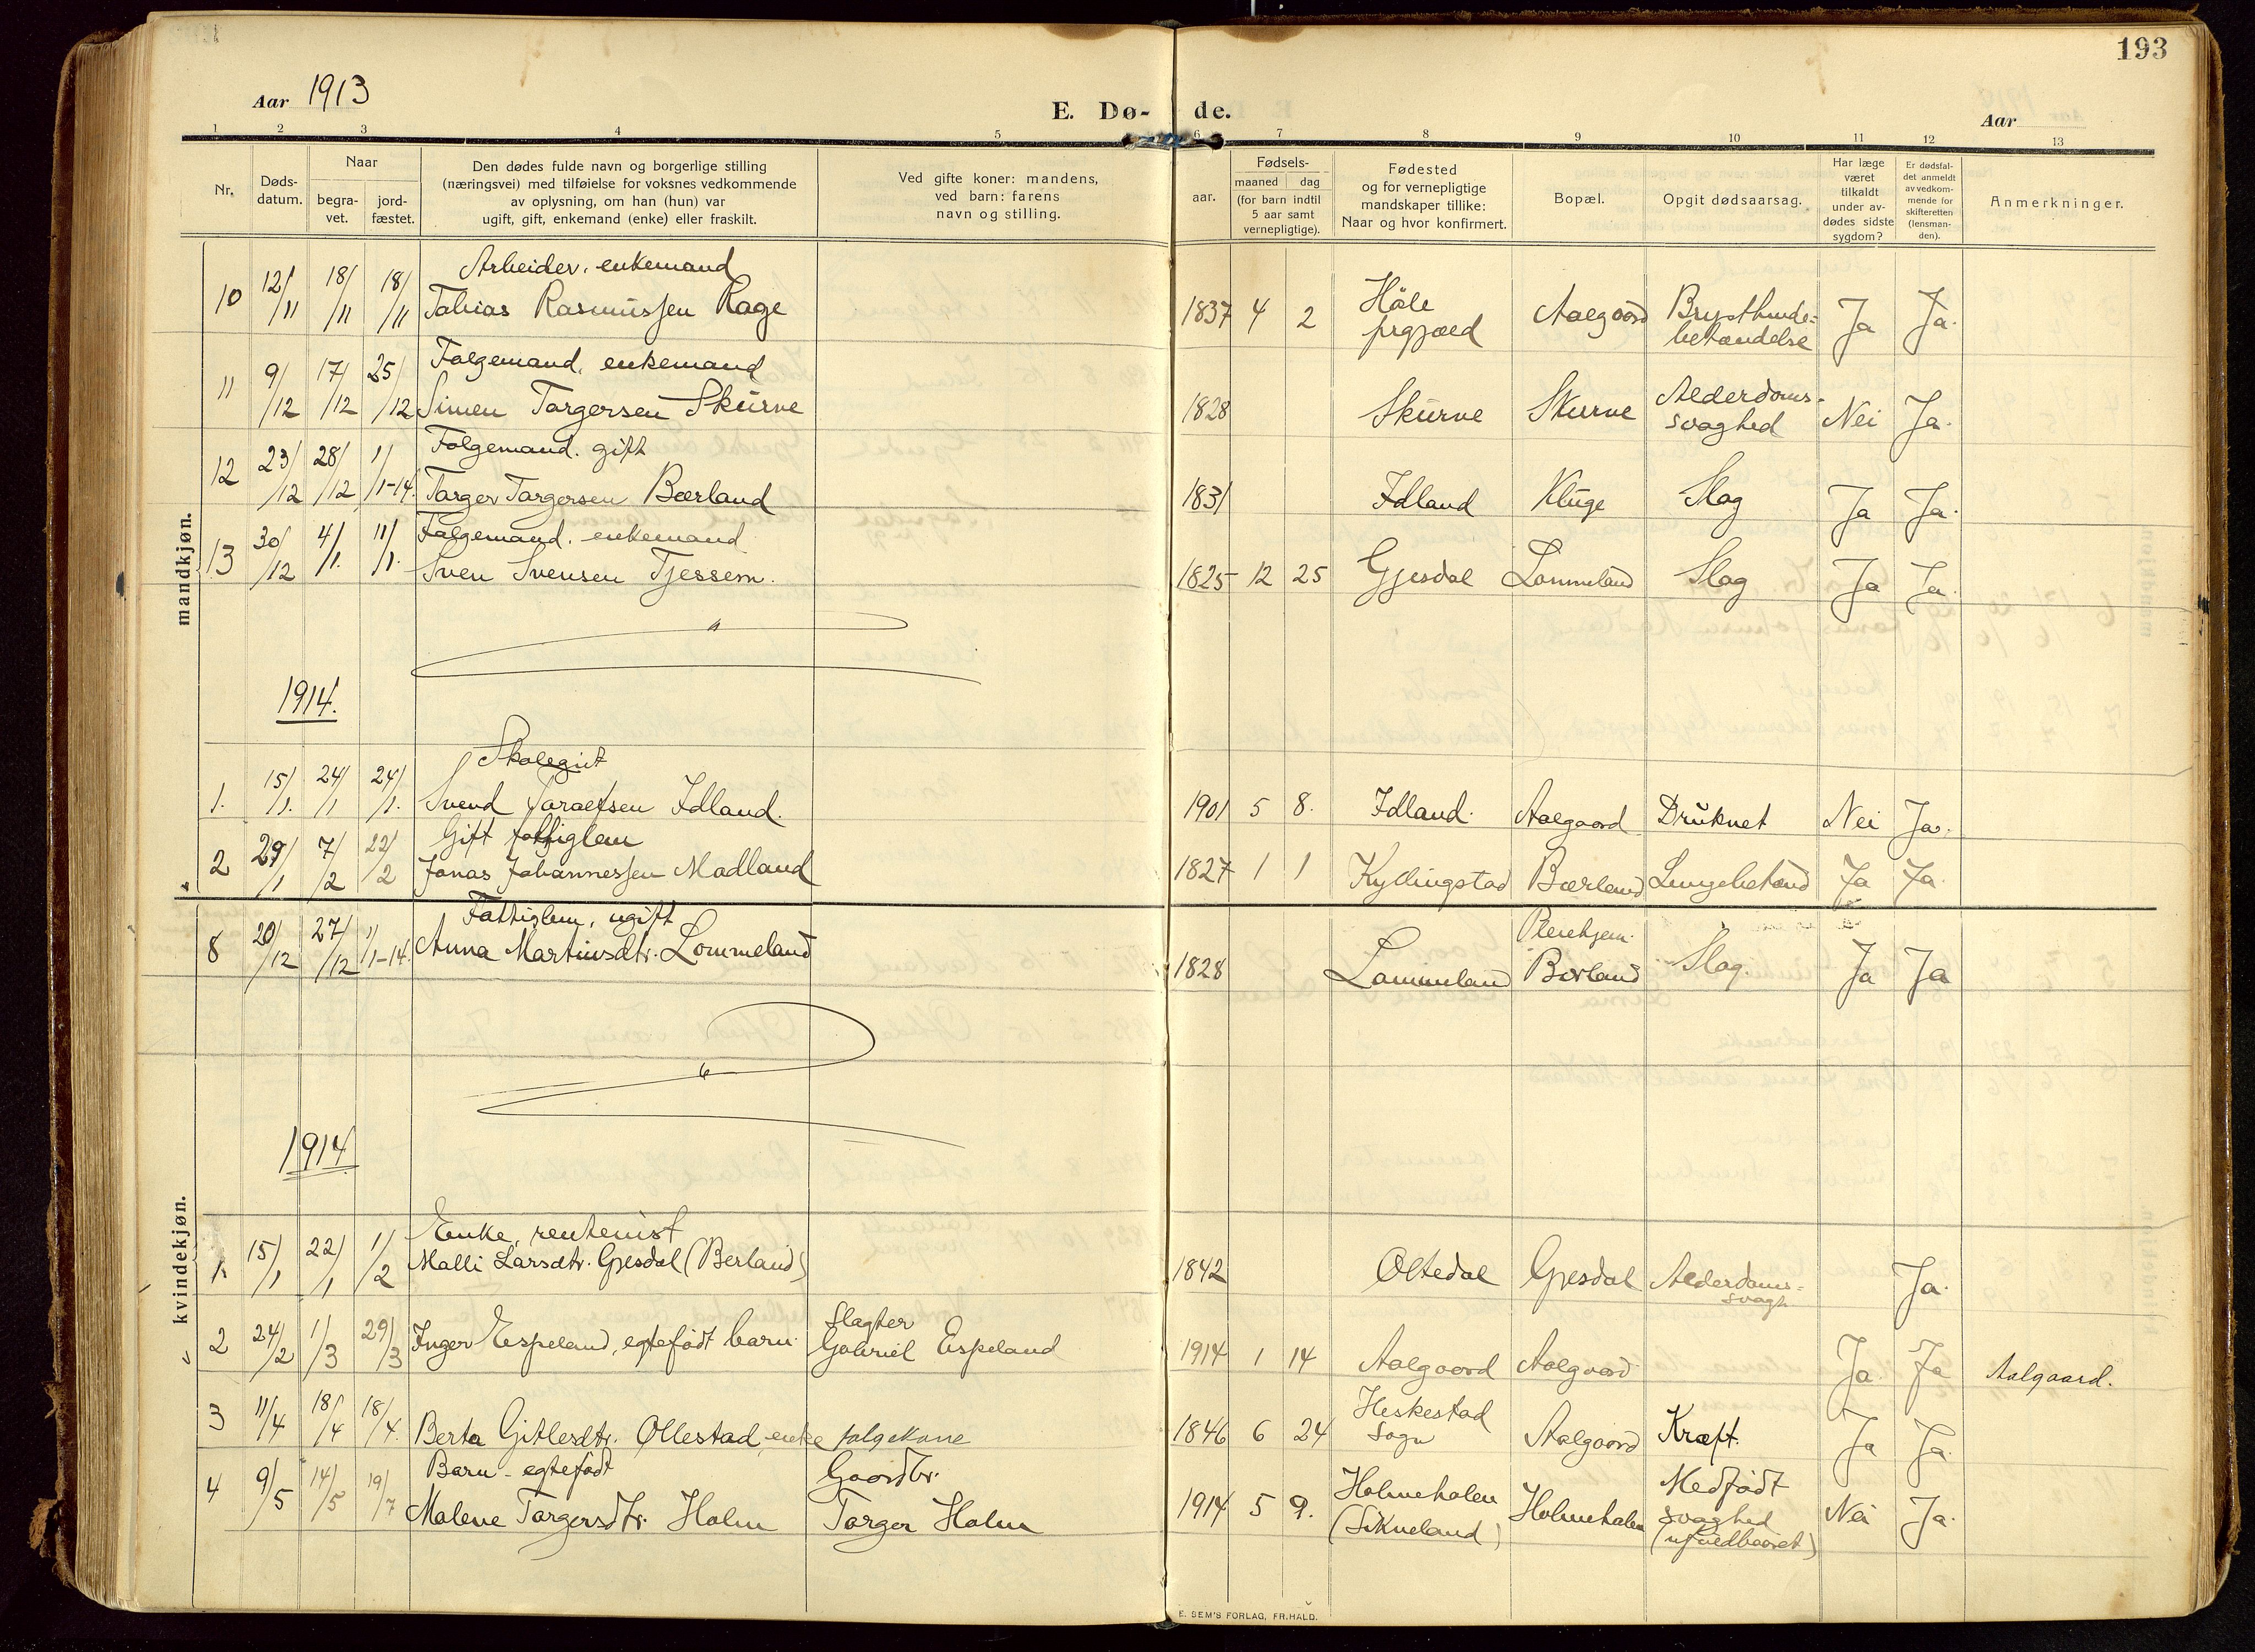 193
Aar 1913
E. Dø- de.
Aar
1 2 3 4 5 6 7 8 9 10 11 12 13
Nr.
Døds-
datum.
Naar
begra-
vet.
jord-
fæstet.
Den dødes fulde navn og borgerlige stilling
(næringsvei) med tilføielse for voksnes vedkommende
av oplysning, om han (hun) var
ugift, gift, enkemand (enke) eller fraskilt.
Ved gifte koner: mandens,
ved barn: farens
navn og stilling.
Fødsels-
aar.
maaned dag
(for barn indtil
5 aar samt
vernepligtige).
Fødested
og for vernepligtige
mandskaper tillike:
Naar og hvor konfirmert.
Bopæl.
Opgit dødsaarsag.
Har læge
været
tilkaldt
under av-
dødes sidste
sygdom?
Er dødsfal-
det anmeldt
av vedkom-
mende for
skifteretten
(lensman-
den).
Anmerkninger.
mandkjøn.
Arbeider, enkemand
10 12/11 18/11 18/11 Tobias Rasmussen Rage 1837 4 2 Höle prgjæld Aalgaard Brysthinde-betændelse Ja Ja.
Følgemand, enkemand
11 9/12 17/12 25/12 Simen Torgersen Skurve 1828 Skurve Skurve Alderdoms-svaghed Nei Ja.
Følgemand. gift
12 23/12 28/12 1/1-14. Torger Torgersen Bærland 1831 Idland Kluge Slag Ja Ja.
Følgemand. enkemand
13 30/12 4/1. 11/1. Sven Svensen Tjessem. 1825 12 25 Gjesdal Lommeland Slag Ja Ja.
1914.
Skolegut
1. 15/1. 24/1 24/1. Svend Toraefsen Idland. 1901 5 8. Idland. Aalgaard Druknet Nei Ja.
Gift fattiglem
2 29/1 7/2 22/2 Jonas Johannessen Madland 1827 1 1 Kyllingstad Bærland Lungebetænd Ja Ja
Fattiglem, ugift
8 20/12 27/12 11/1-14. Anna Martinsdtr. Lommeland 1828 Lommeland Pleiehjem. Bærland Slag. Ja Ja
1914
kvindekjøn.
Enke, rentenist
1. 15/1 22/1 1/2 Malli Larsdtr. Gjesdal (Berland) 1842 Oltedal Gjesdal Alderdoms-svagh Ja.
2 24/2 1/3 29/3 Inger Espeland, egtefødt barn. Slagter Gabriel Espeland 1914 1 14 Aalgaard Aalgaard Ja. Ja Aalgaard.
3 11/4 18/4 18/4. Berta Gitlesdtr. Ollestad, enke følgekone 1846 6 24 Heskestad Sogn Aalgaard Kræft. Ja Ja.
Barn - egtefødt
4 9/5 14/5 19/7 Malene Torgersdtr. Holm Gaardbr. Torger Holm 1914 5 9. Holmehalen (Sikveland) Holmehalen Medfødt svaghed (ufuldbaaret) Nei Ja.
E. SEM'S FORLAG, FR.HALD.